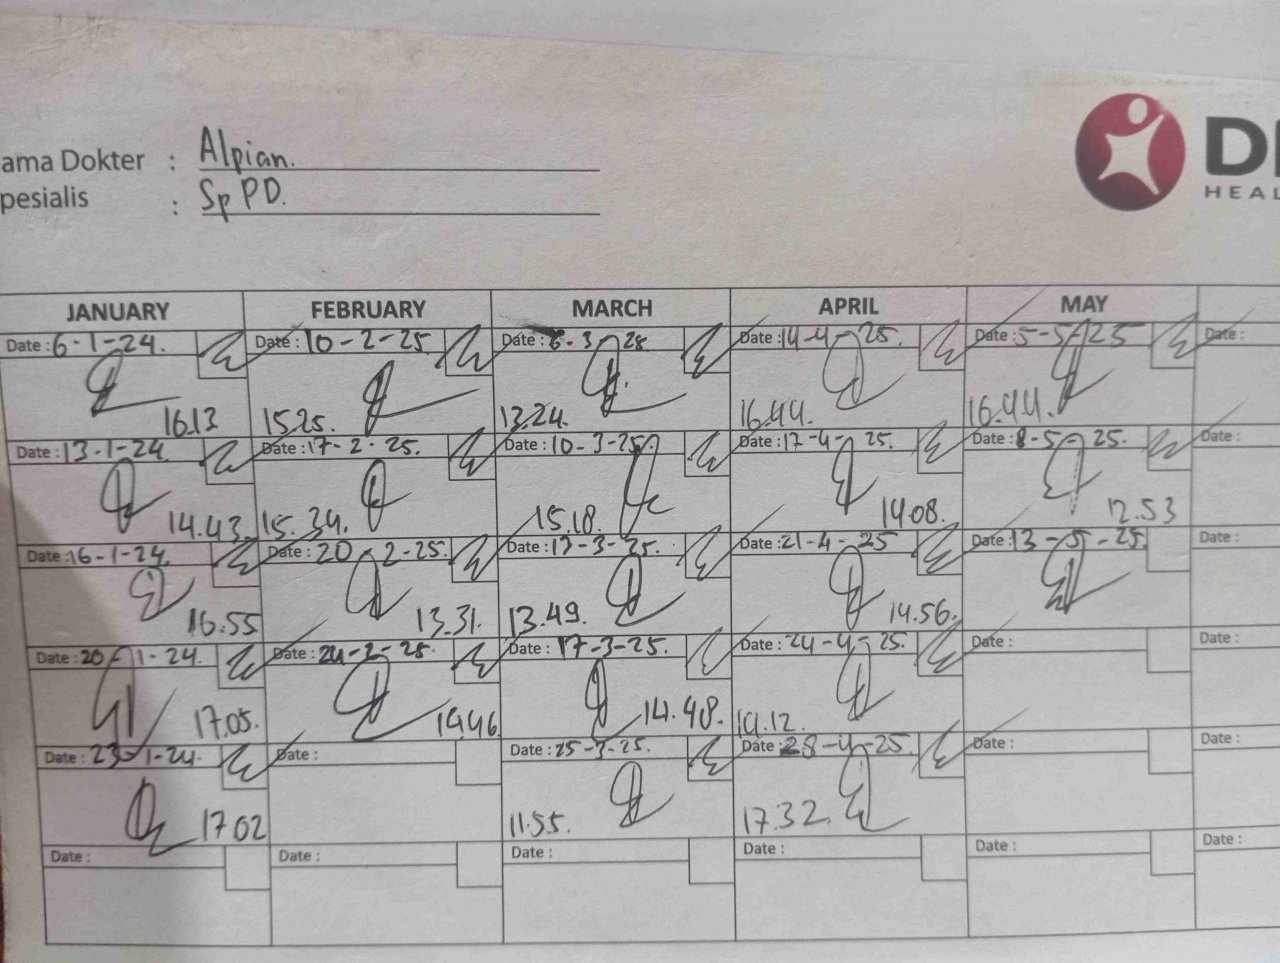 ama Dokter : Alpian.
pesialis : SpPD.
HEAL
JANUARY FEBRUARY MARCH APRIL MAY
Date : 6-1-24. Date : 10-2-25. Date : 6-3-25 Date : 14-4-25. Date : 5-5-25 Date :
16.13 15.25. 13.24. 16.44. 16.44.
Date : 13-1-24 Date : 17-2-25. Date : 10-3-25. Date : 17-4-25. Date : 8-5-25. Date :
14.43. 15.34. 15.18. 14.08. 12.53
Date : 16-1-24. Date : 20-2-25. Date : 13-3-25. Date : 21-4-25 Date : 13-5-25. Date :
16.55 13.31. 13.49. 14.56.
Date : 20-1-24. Date : 24-2-25. Date : 17-3-25. Date : 24-4-25. Date : Date :
17.05. 14.46 14.48. 14.12.
Date : 23-1-24. Date : Date : 25-3-25. Date : 28-4-25. Date : Date :
17.02 11.55. 17.32.
Date : Date : Date : Date : Date : Date :